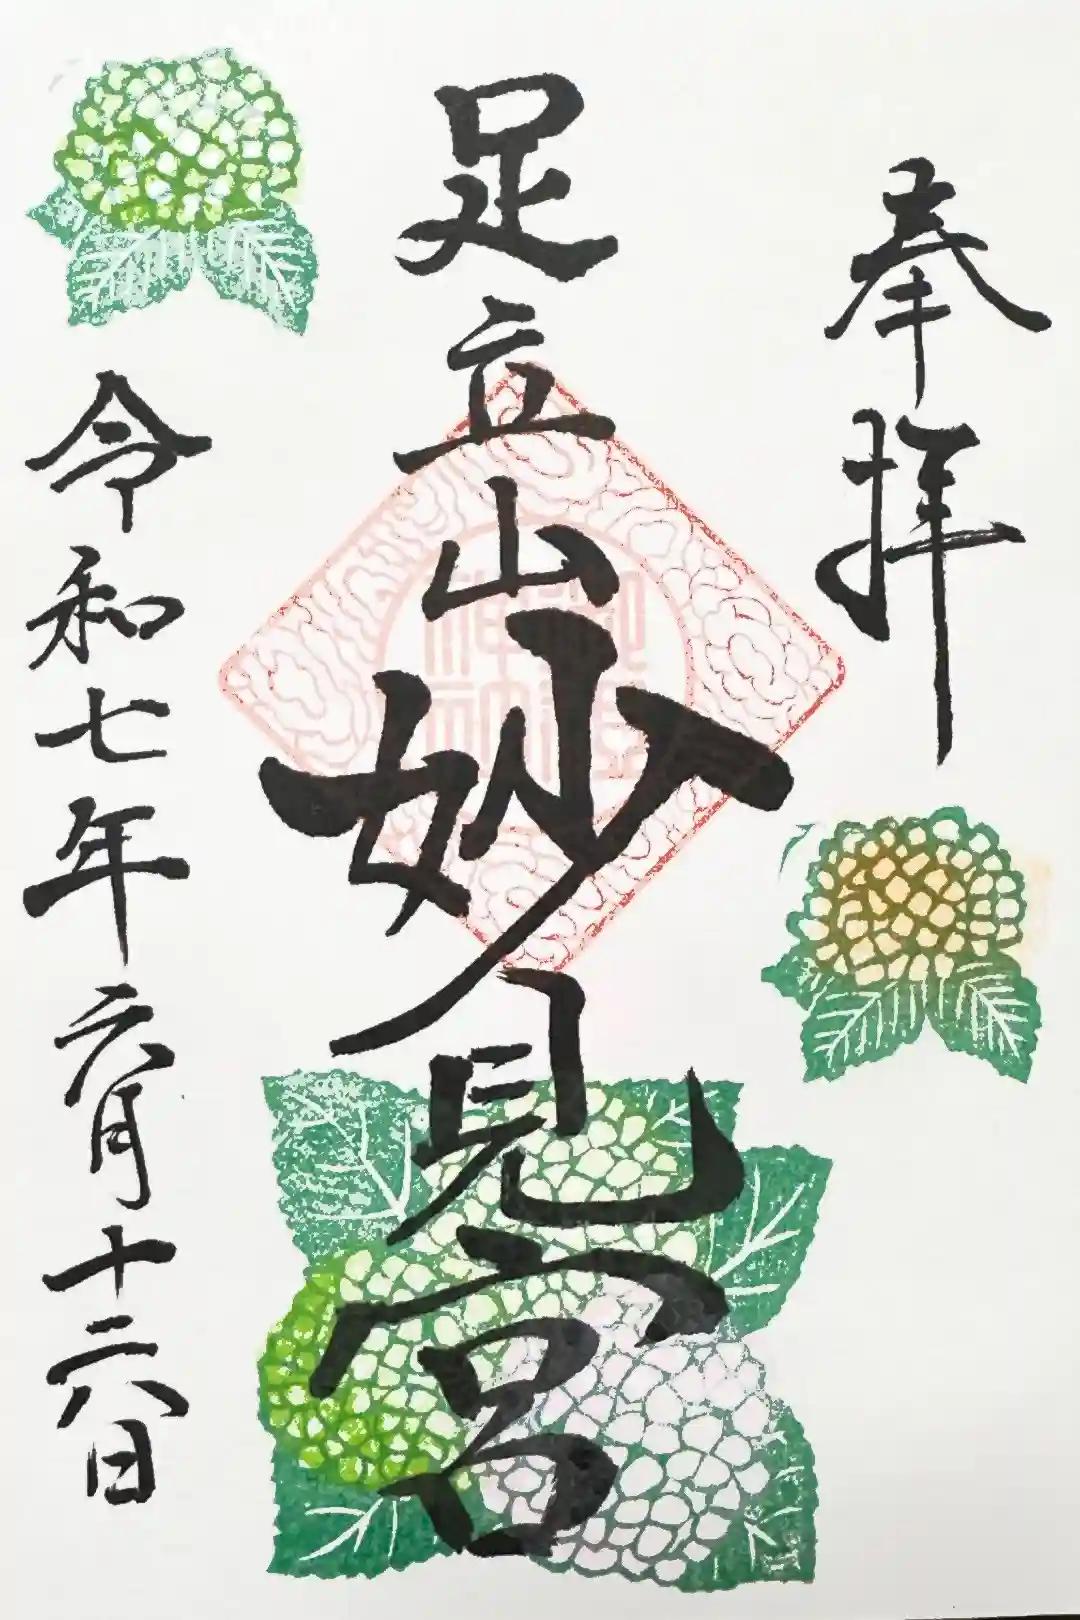 奉拝
足立山妙見宮
御祖
神社
令和七年六月十六日